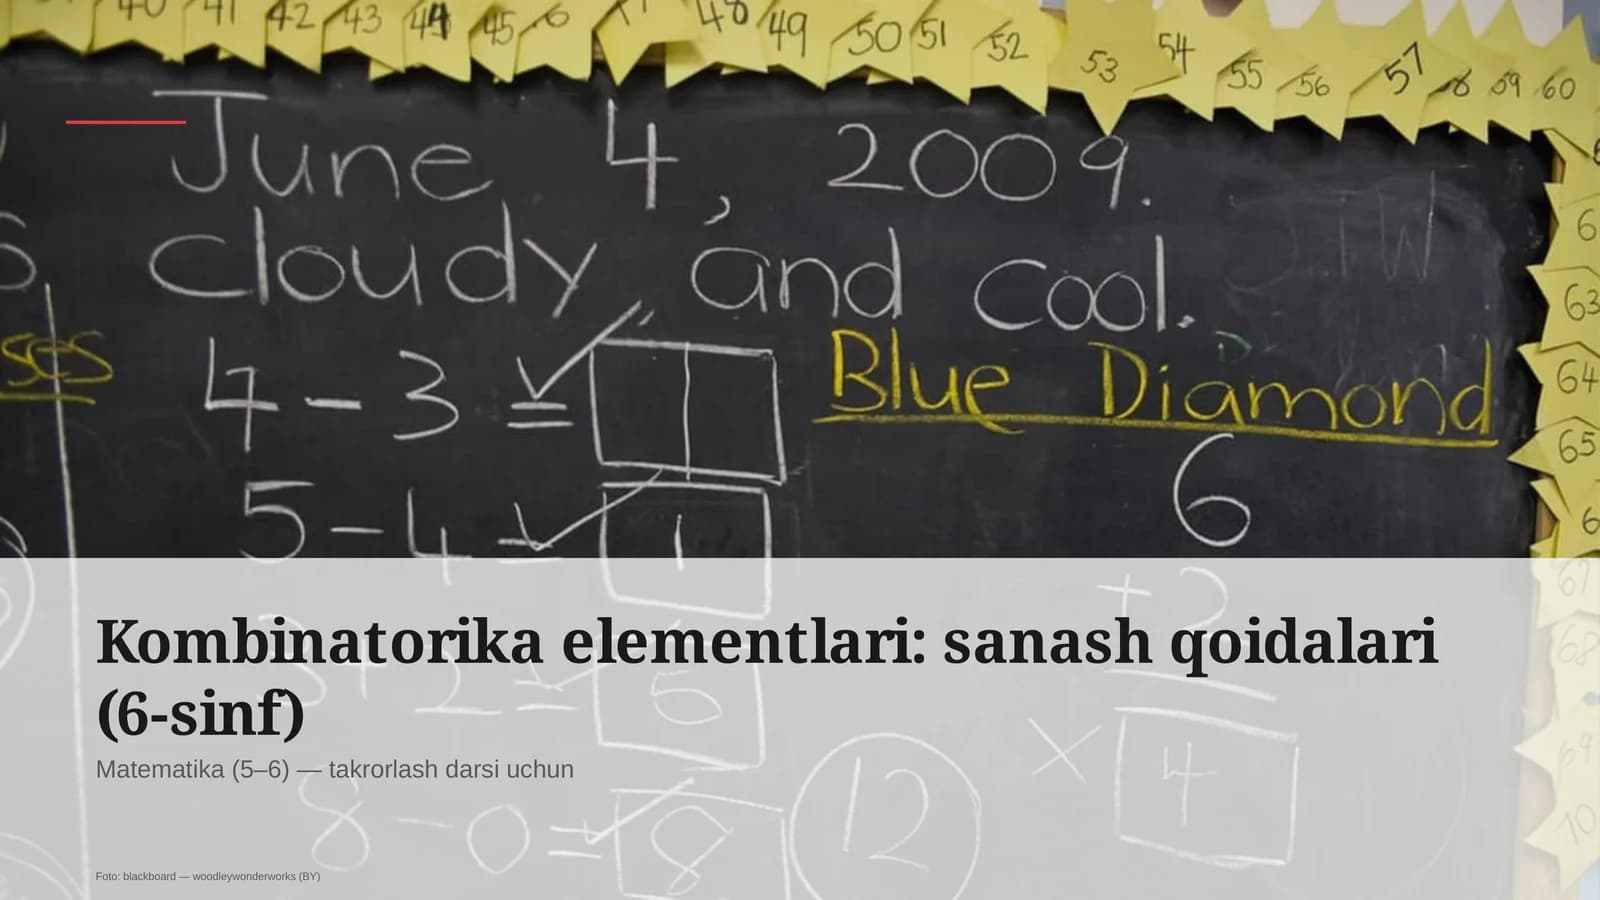 40 41 42 43 44 45 48 49 50 51 52 53 54 55 56 57 58 59 60
June 4, 2009.
cloudy, and cool.
63
ses
4 – 3 =
Blue Diamond
64
5 – 4 = 1
6
65
+ 2
67
Kombinatorika elementlari: sanash qoidalari
(6-sinf)
3 + 2 = 5
68
x 4
69
Matematika (5–6) — takrorlash darsi uchun
8 – 0 = 8
12
70
Foto: blackboard — woodleywonderworks (BY)